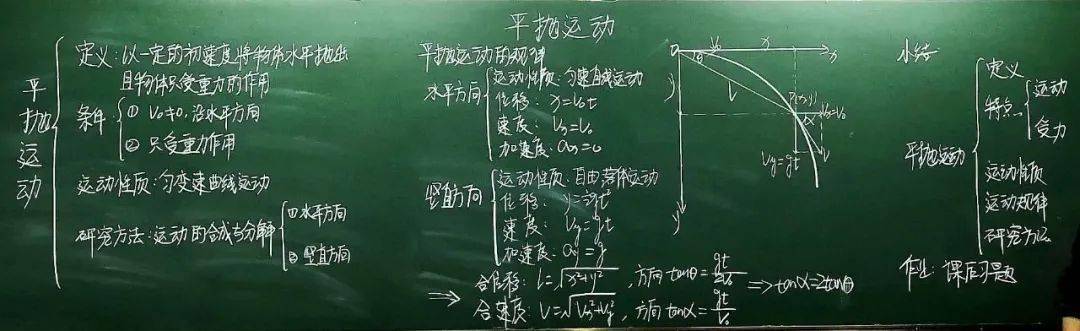 平抛运动
平抛运动
定义：以一定的初速度将物体水平抛出
且物体只受重力的作用
条件
① V₀≠0，沿水平方向
② 只受重力作用
运动性质：匀变速曲线运动
研究方法：运动的合成与分解
① 水平方向
② 竖直方向
平抛运动的规律
水平方向
运动性质：匀速直线运动
位移：x=V₀t
速度：Vx=V₀
加速度：ax=0
竖直方向
运动性质：自由落体运动
位移：y=½gt²
速度：Vy=gt
加速度：ay=g
⇒ 合位移：l=√x²+y²，方向tanθ=gt/2V₀
合速度：V=√Vx²+Vy²，方向tanα=gt/V₀
⇒tanα=2tanθ
V₀
x
x
θ
y
l
P(x,y)
Vx=V₀
α
Vy=gt
V
y
小结
平抛运动
定义
特点
运动
受力
运动性质
运动规律
研究方法
作业：课后习题